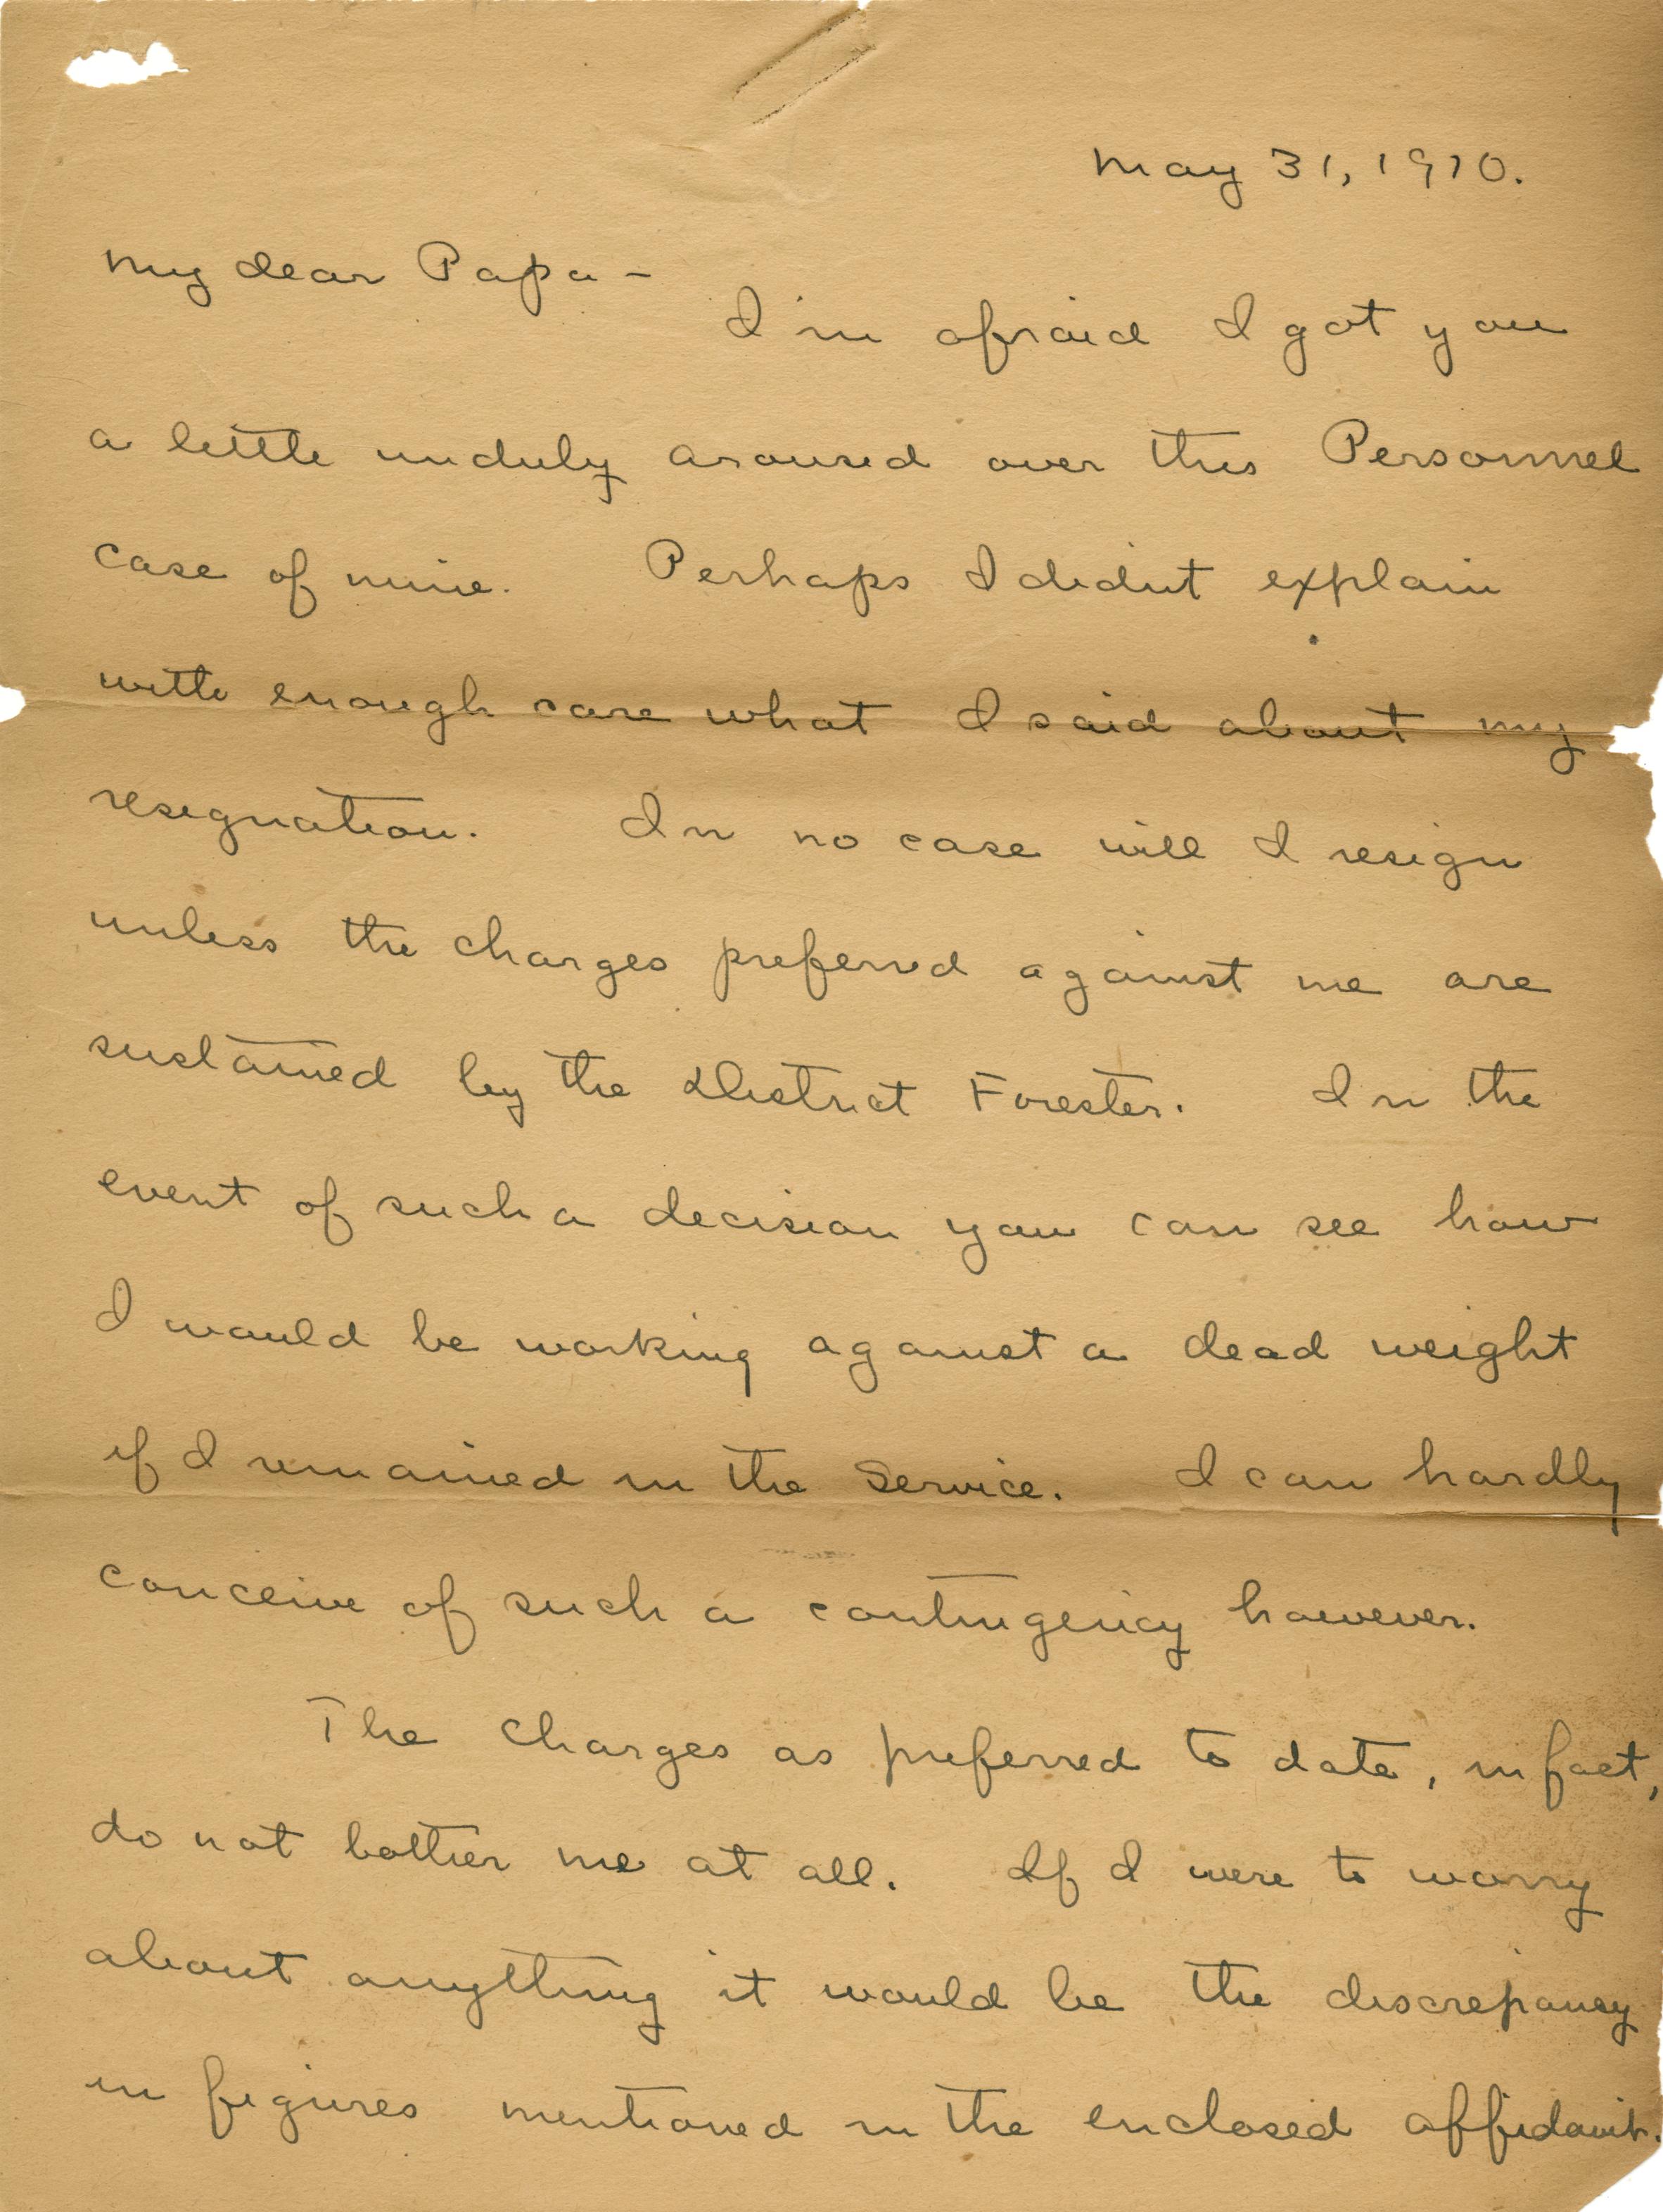 May 31, 1910.
My dear Papa -
I'm afraid I got you
a little unduly aroused over this Personnel
case of mine. Perhaps I didn't explain
with enough care what I said about my
resignation. In no case will I resign
unless the charges preferred against me are
sustained by the District Forester. In the
event of such a decision you can see how
I would be working against a dead weight
if I remained in the Service. I can hardly
conceive of such a contingency however.
The charges as preferred to date, in fact,
do not bother me at all. If I were to worry
about anything it would be the discrepancy
in figures mentioned in the enclosed affidavit.